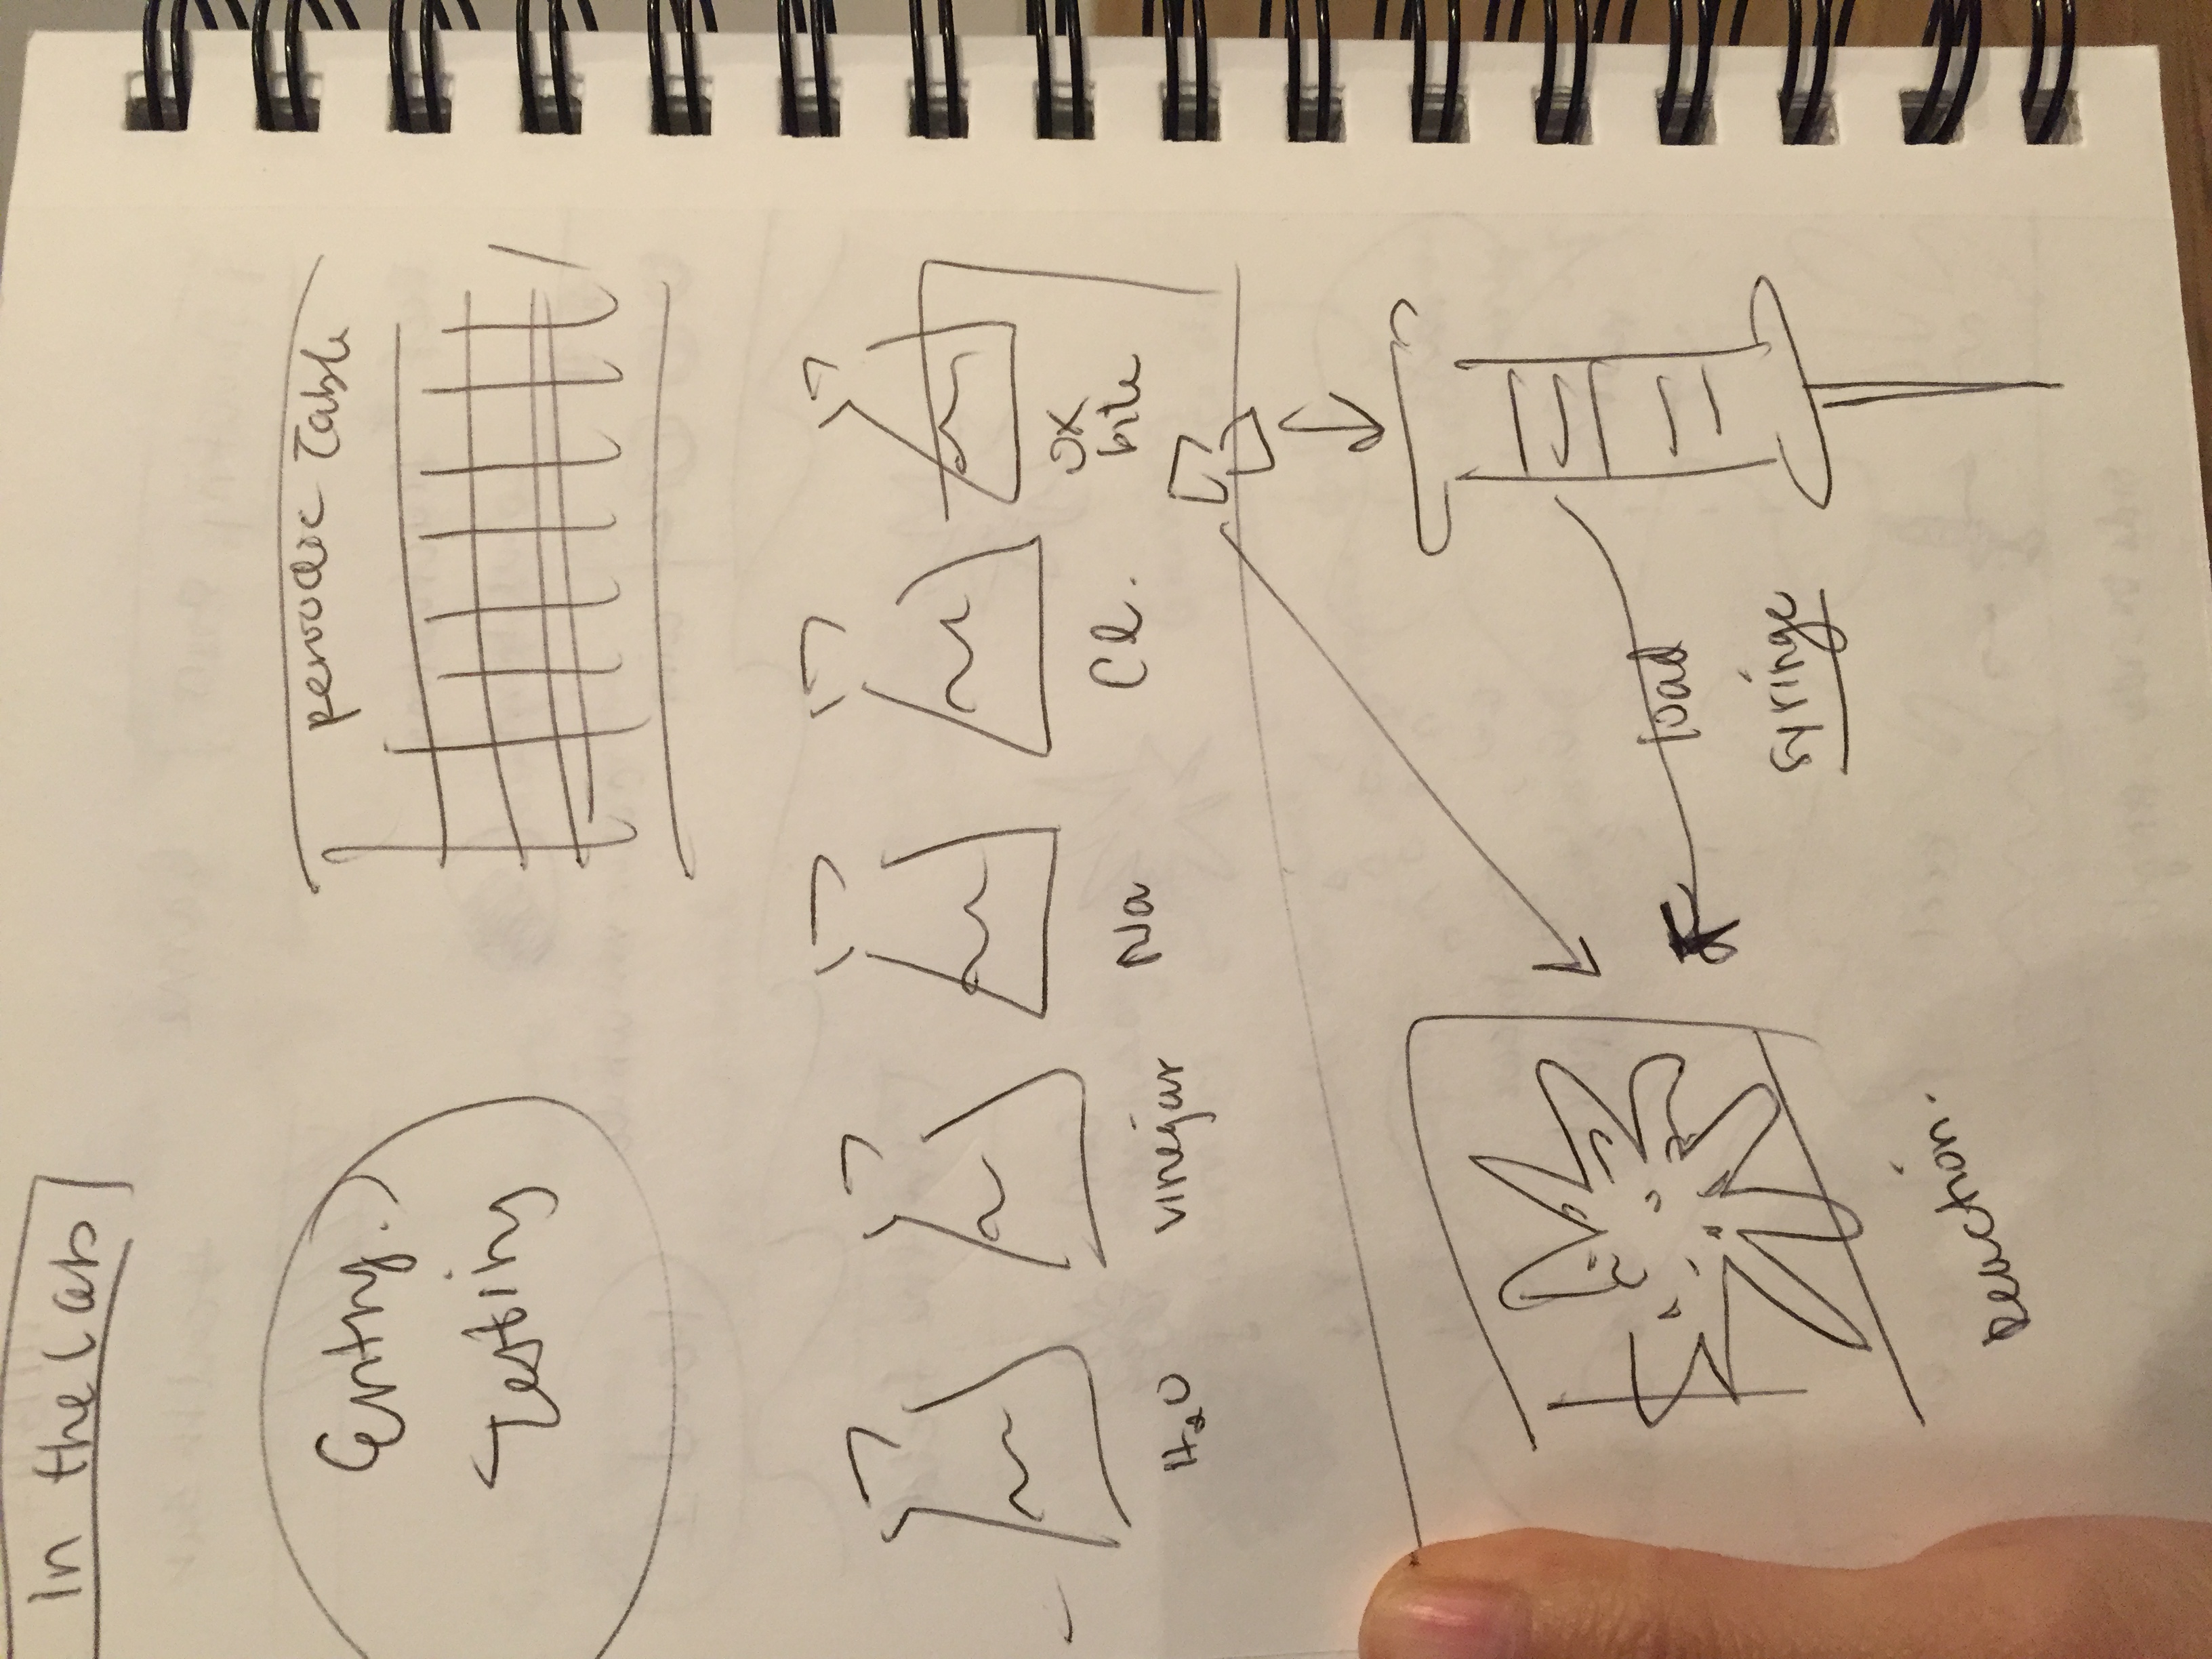 In the Lab
Entry.
Testing
periodic Table
H2O
vinegar
Na
Cl.
OX
bile
load
syringe
Reaction.